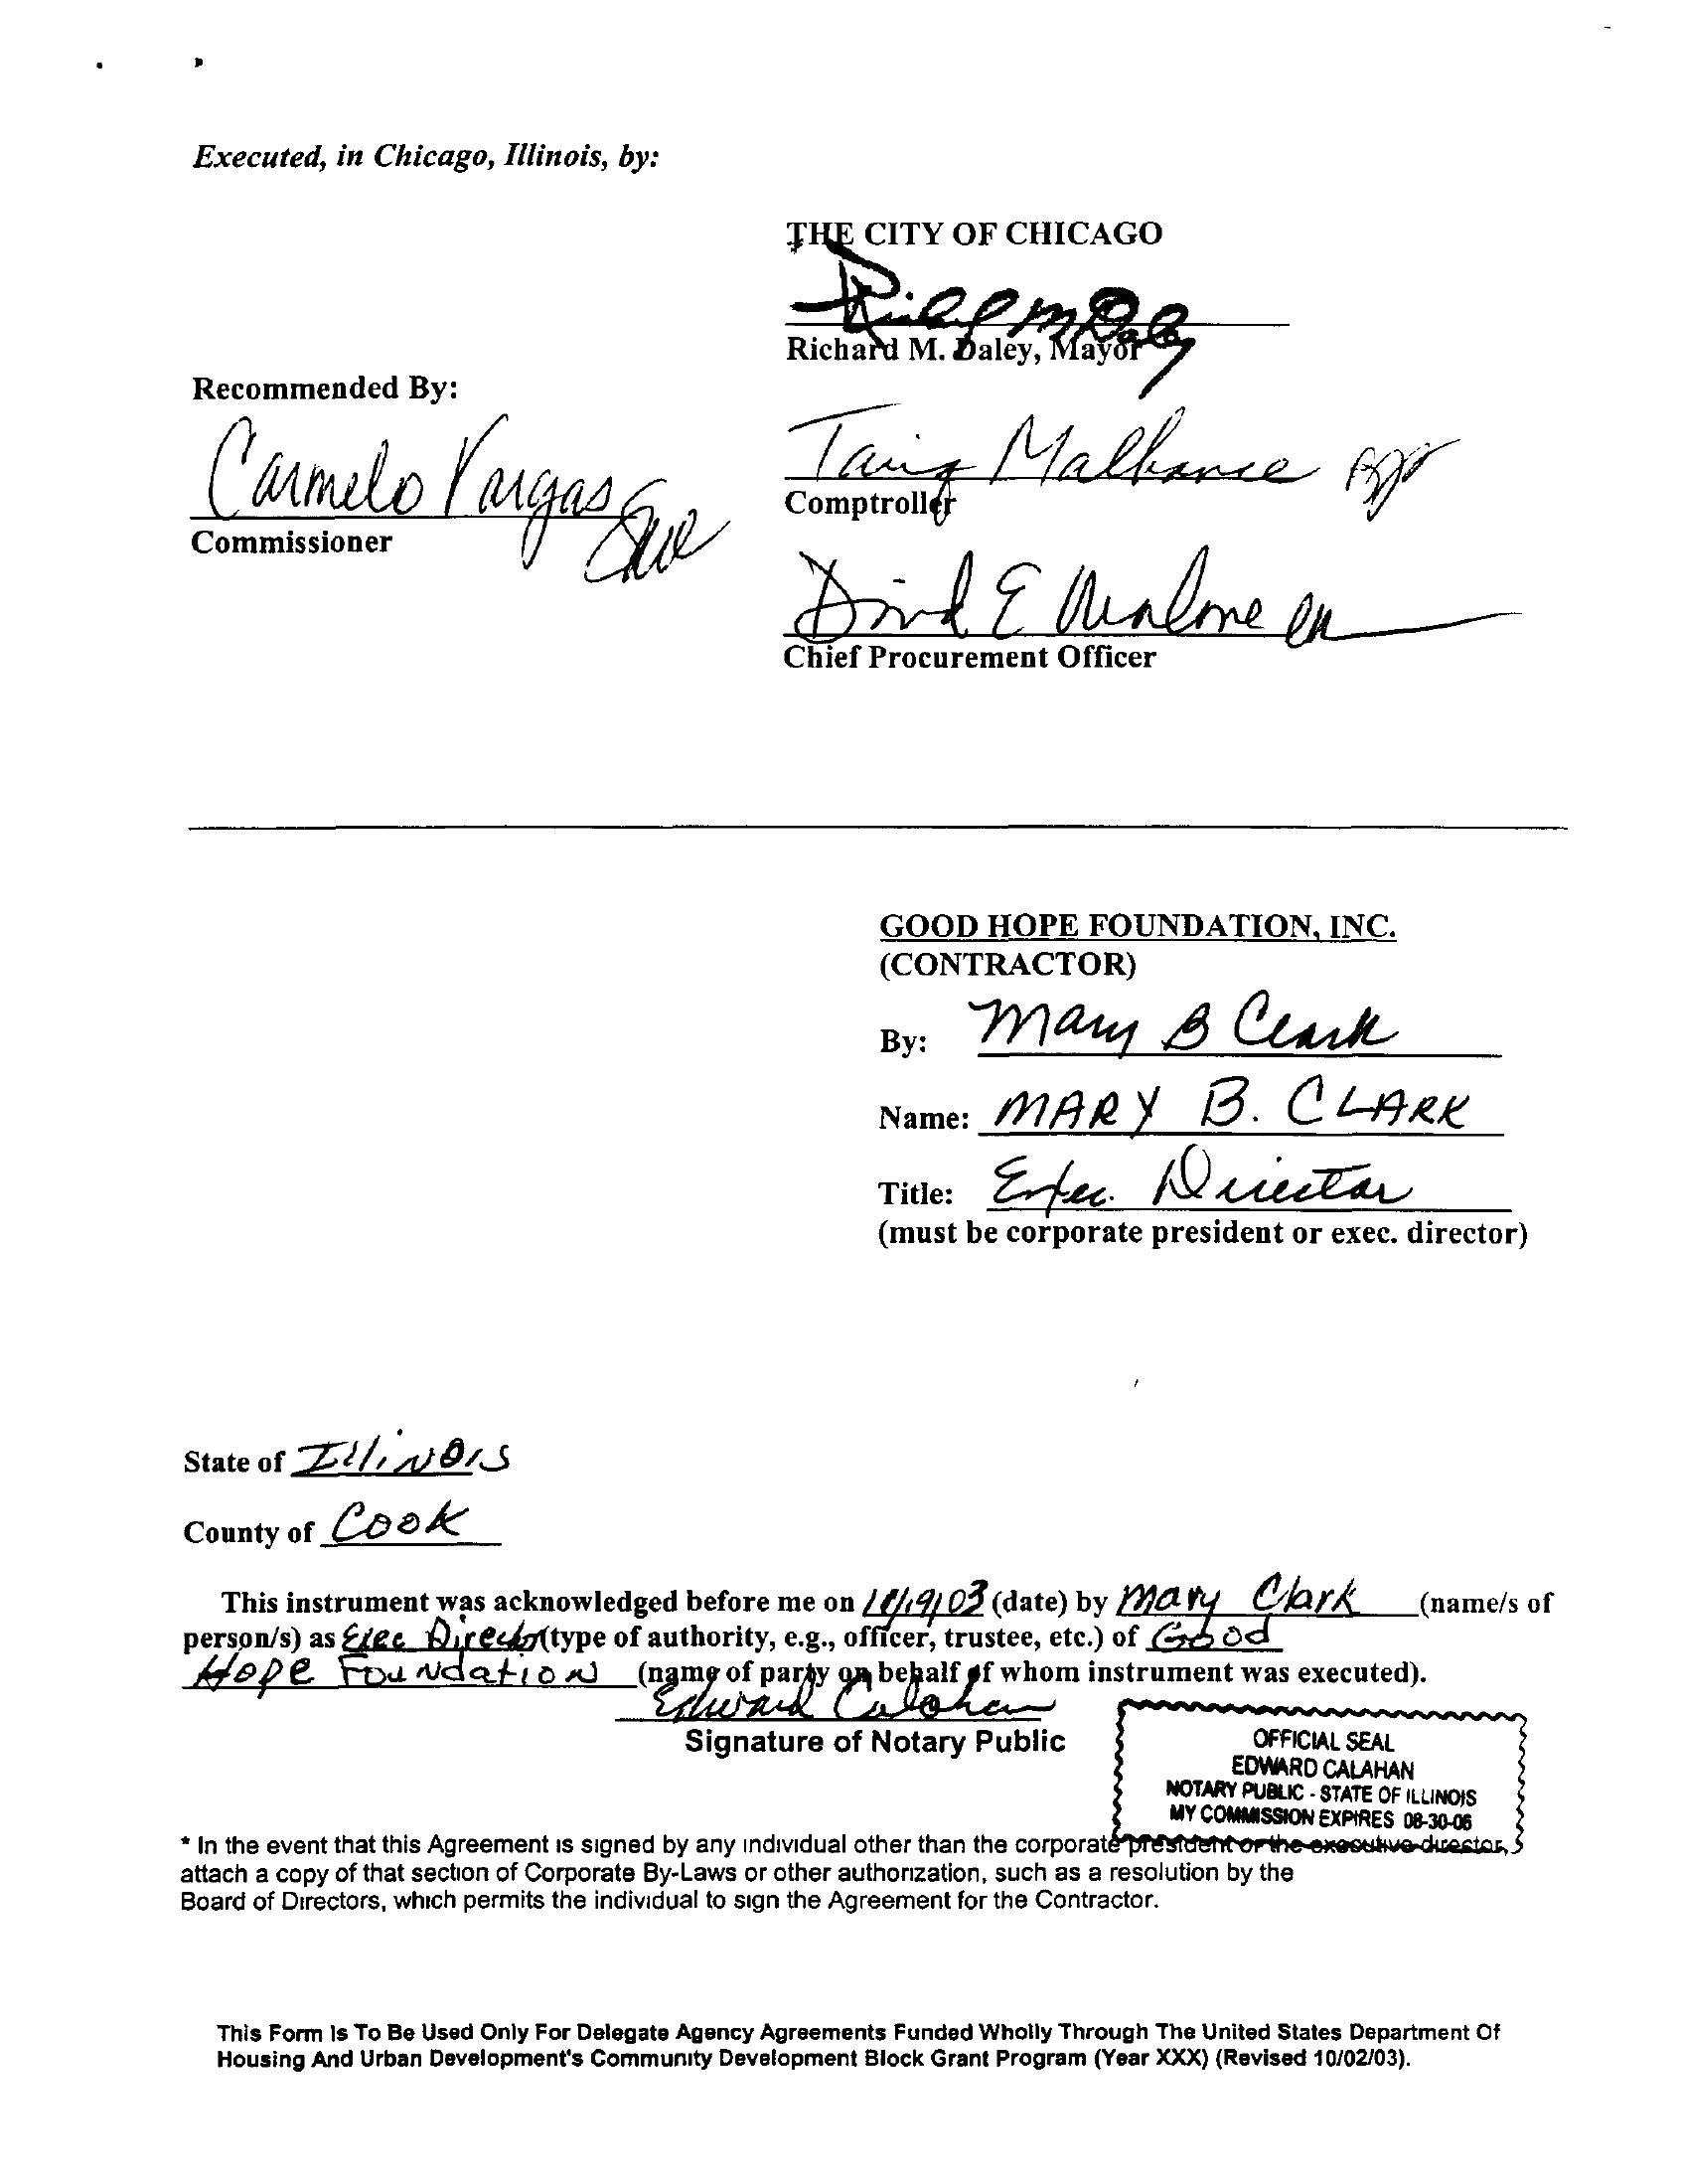 Executed, in Chicago, Illinois, by:
THE CITY OF CHICAGO
Richard M. Daley, Mayor
Recommended By:
Carmelo Vargas
Commissioner
Tariq Malhance
Comptroller
David E Malone
Chief Procurement Officer
GOOD HOPE FOUNDATION, INC.
(CONTRACTOR)
By: Mary B Clark
Name: MARY B. CLARK
Title: Exec. Director
(must be corporate president or exec. director)
State of Illinois
County of Cook
This instrument was acknowledged before me on (date) by Mary Clark (name/s of
person/s) as Exec Director (type of authority, e.g., officer, trustee, etc.) of Good
Hope Foundation (name of party on behalf of whom instrument was executed).
Edward Calahan
Signature of Notary Public
OFFICIAL SEAL
EDWARD CALAHAN
NOTARY PUBLIC - STATE OF ILLINOIS
MY COMMISSION EXPIRES 08-30-06
* In the event that this Agreement is signed by any individual other than the corporate president or the executive director,
attach a copy of that section of Corporate By-Laws or other authorization, such as a resolution by the
Board of Directors, which permits the individual to sign the Agreement for the Contractor.
This Form Is To Be Used Only For Delegate Agency Agreements Funded Wholly Through The United States Department Of
Housing And Urban Development's Community Development Block Grant Program (Year XXX) (Revised 10/02/03).